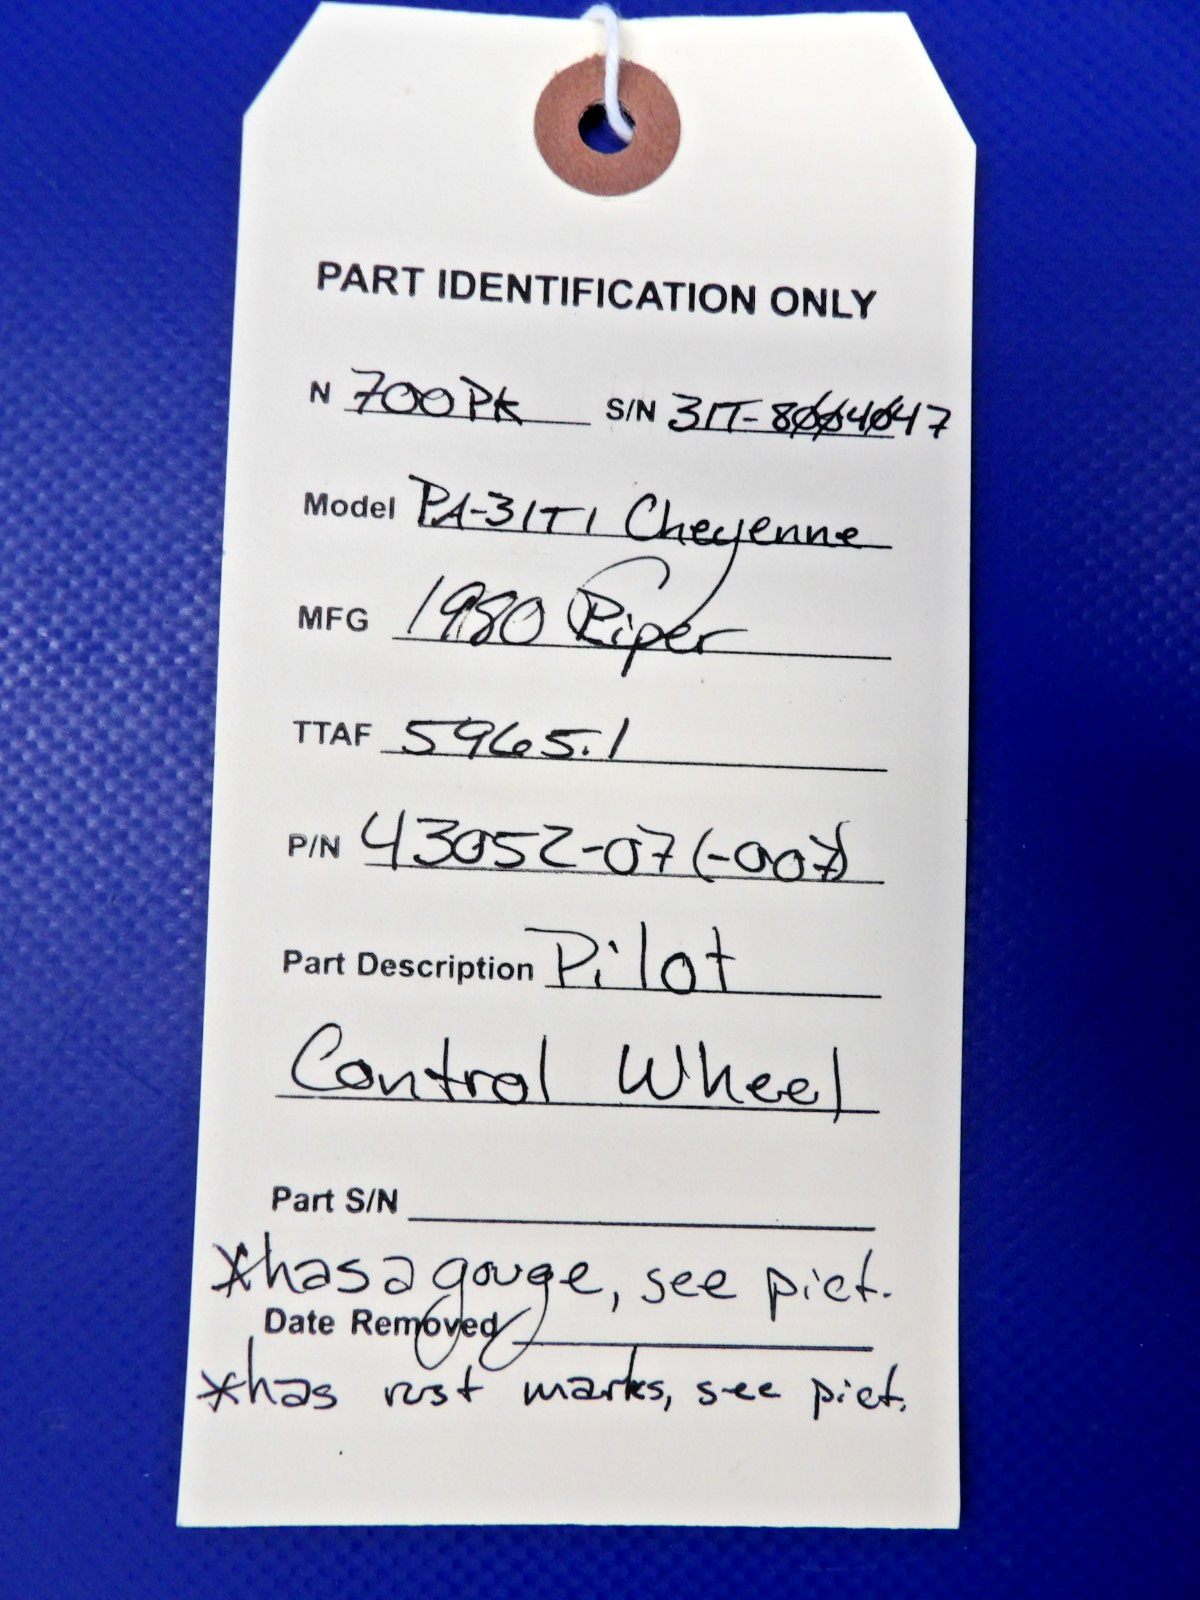 PART IDENTIFICATION ONLY
N 700PK S/N 31T-8004047
Model PA-31T1 Cheyenne
MFG 1980 Piper
TTAF 5965.1
P/N 43052-07(-007)
Part Description Pilot
Control Wheel
Part S/N
*has a gouge, see pict.
Date Removed
*has rust marks, see pict.